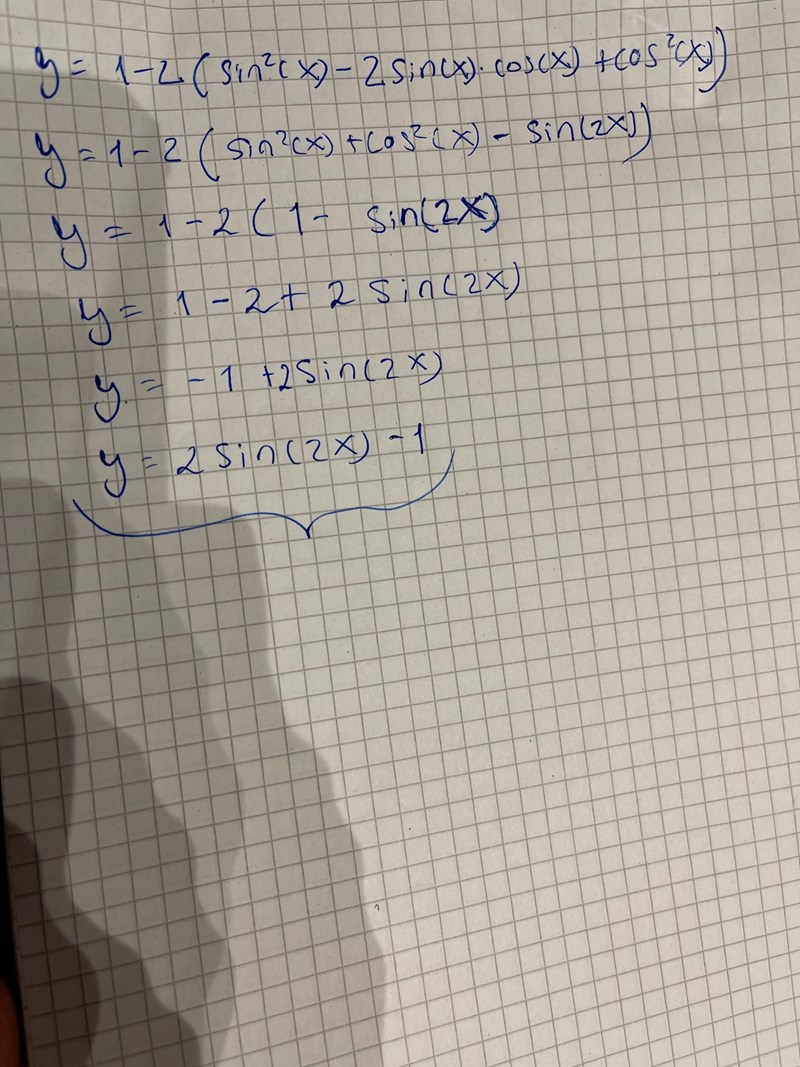 y = 1-2(sin²(x) - 2sin(x)·cos(x) + cos²(x))
y = 1-2(sin²(x) + cos²(x) - sin(2x))
y = 1-2(1- sin(2x)
y = 1-2+2 sin(2x)
y = -1 +2sin(2x)
y = 2 sin(2x) -1